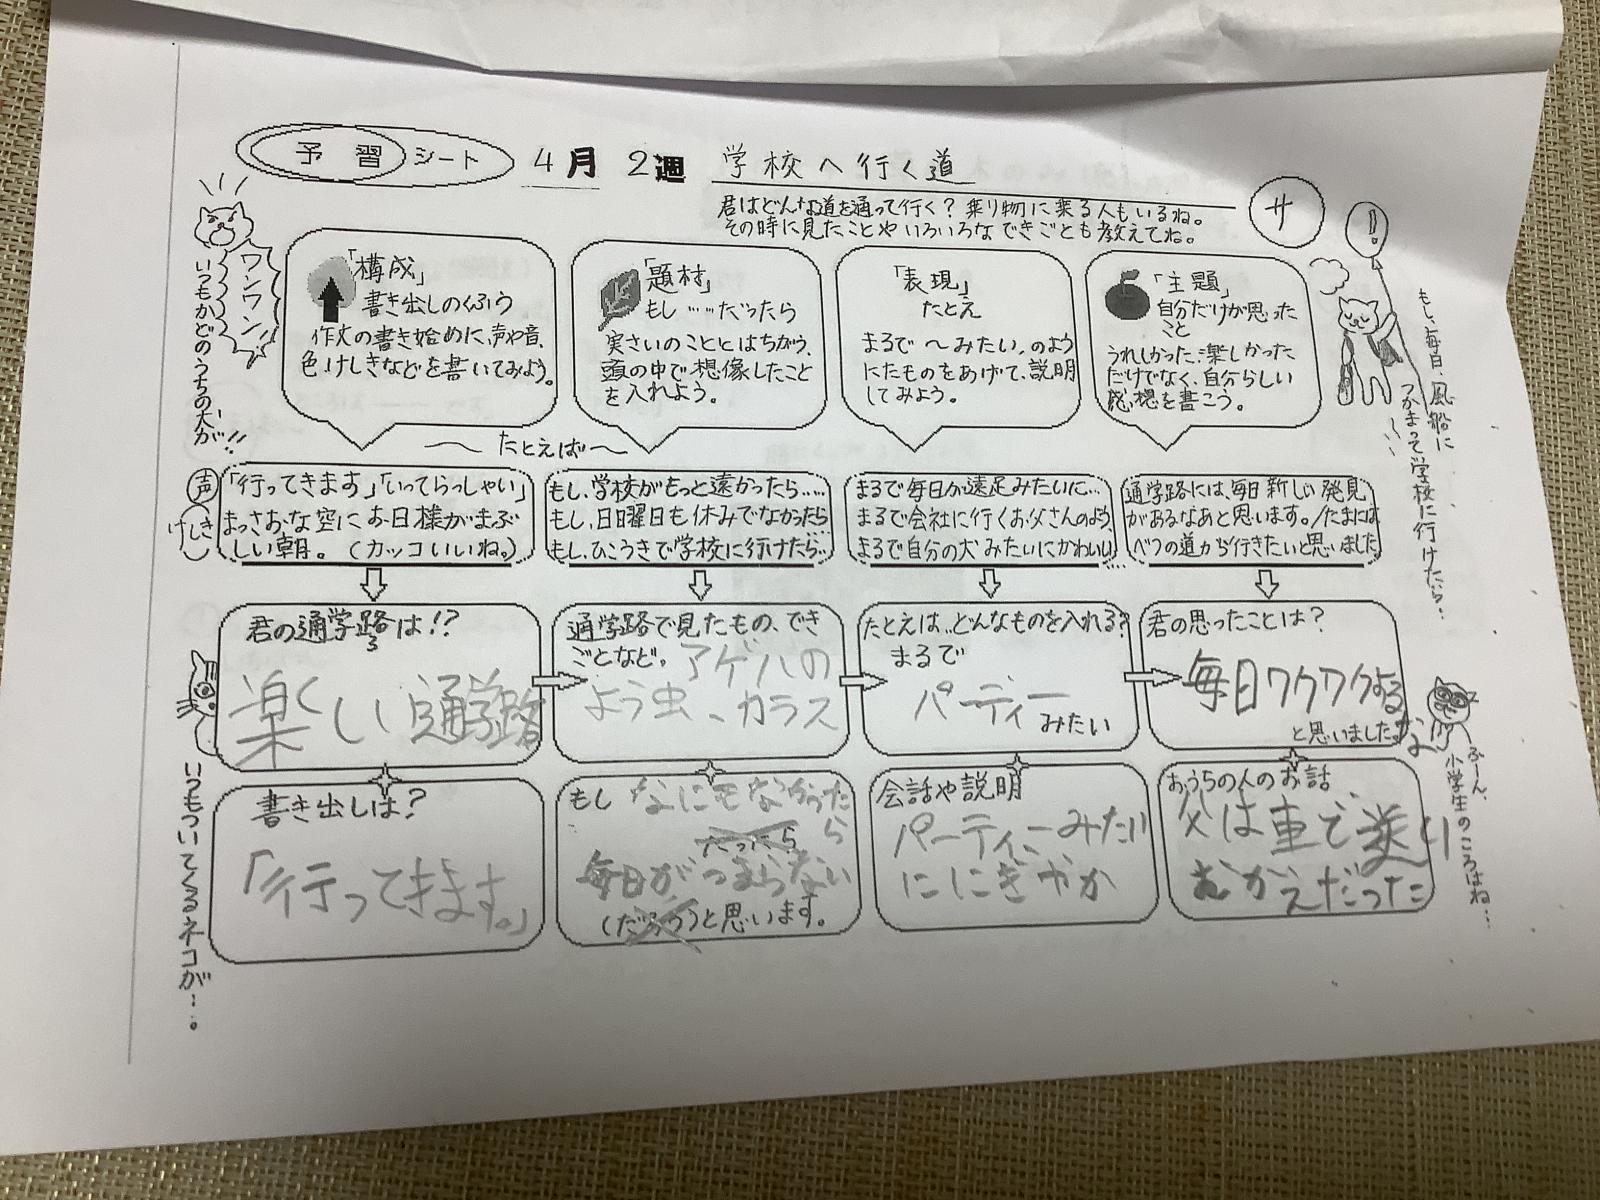 予習シート 4月2週 学校へ行く道
君はどんな道を通って行く?乗り物に乗る人もいるね。
その時に見たことやいろいろなできごとも教えてね。
サ
ワンワン!
いつもかどのうちの犬が!!
「構成」
書き出しのくふう
作文の書き始めに、声や音、
色、けしきなどを書いてみよう。
「題材」
もし……だったら
実さいのこととはちがう、
頭の中で想像したこと
を入れよう。
「表現」
たとえ
まるで〜みたい。のよう
にたものをあげて、説明
してみよう。
「主題」
自分だけが思った
こと
うれしかった、楽しかった
だけでなく、自分らしい
感想を書こう。
!
もし、毎日、風船に
つかまって学校に行けたら…
〜たとえば〜
声
けしき
「行ってきます」「いってらっしゃい」
まっさおな空にお日様がまぶ
しい朝。(カッコいいね。)
もし、学校がもっと遠かったら……
もし、日曜日も休みでなかったら…
もし、ひこうきで学校に行けたら…
まるで毎日が遠足みたいに…
まるで会社に行くお父さんのよう。
まるで自分の犬みたいにかわいい…
通学路には、毎日新しい発見
があるなあと思います。/たまには
べつの道から行きたいと思いました。
君の通学路は!?
ろ
楽しい通学路
通学路で見たもの、でき
ごとなど。アゲハの
よう虫、カラス
たとえは、どんなものを入れる?
まるで
パーティー
みたい
君の思ったことは?
毎日ワクワクするな
と思いました。
書き出しは?
「行ってきます。」
もし なにもなかったら
だったら
毎日がつまらない
(だろう)と思います。
会話や説明
パーティーみたい
ににぎやか
おうちの人のお話
父は車で送り
むかえだった
いつもついてくるネコが…。
ふーん、
小学生のころはね…